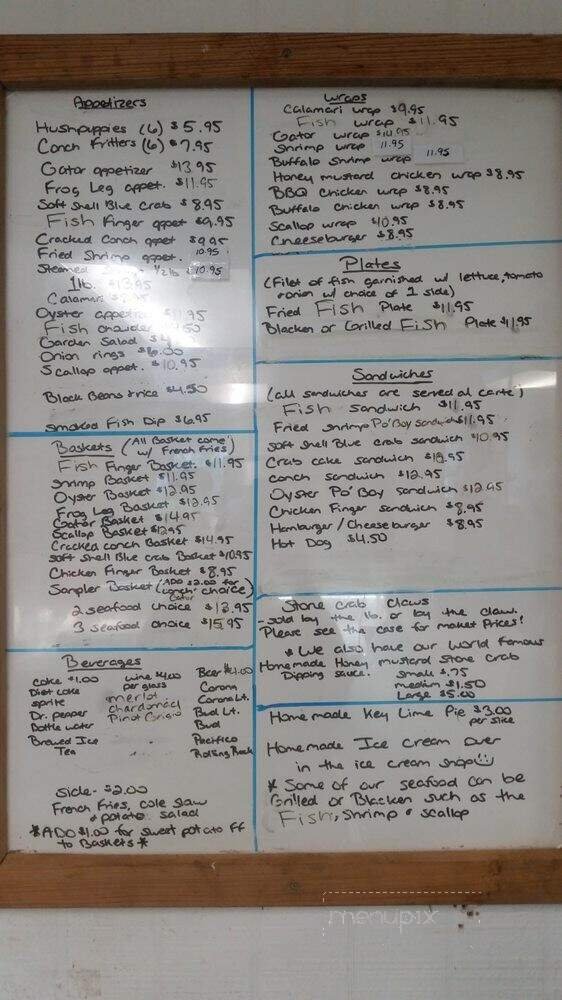 Appetizers
Hushpuppies (6) $5.95
Conch Fritters (6) $7.95
Gator appetizer $13.95
Frog Leg appet. $11.95
Soft Shell Blue Crab $8.95
Fish Finger appet $9.95
Cracked Conch appet $9.95
Fried Shrimp appet. 10.95
Steamed 1/2 lb $10.95
1 lb. $13.95
Calamari
Oyster appetizer $11.95
Fish chowder $4.50
Garden Salad
Onion rings $6.00
Scallop appet. $10.95
Black Beans & rice $4.50
Smoked Fish Dip $6.95
Baskets (All Basket come w/ French Fries)
Fish Finger Basket. $11.95
Shrimp Basket $11.95
Oyster Basket $12.95
Frog Leg Basket $12.95
Gator Basket $14.95
Scallop Basket $12.95
Cracked conch Basket $14.95
soft shell Blue crab Basket $10.95
Chicken Finger Basket $8.95
Sampler Basket (ADD $2.00 for conch, Gator choice)
2 seafood choice $13.95
3 seafood choice $15.95
Beverages
coke $1.00
Diet coke
sprite
Dr. pepper
Bottle water
Brewed Ice
Tea
wine $4.00
per glass
merlot
chardonnay
Pinot Grigio
Beer $4.00
Corona
Corona Lt.
Bud Lt.
Bud
Pacifico
Rolling Rock
Side - $2.00
French Fries, cole slaw
& potato salad
*ADD $1.00 for sweet potato FF
to Baskets*
Wraps
Calamari wrap $9.95
Fish wrap $11.95
Gator wrap $14.95
Shrimp wrap 11.95
Buffalo Shrimp wrap 11.95
Honey mustard chicken wrap $8.95
BBQ Chicken wrap $8.95
Buffalo Chicken wrap $8.95
Scallop wrap $10.95
Cheeseburger $8.95
Plates
(Filet of fish garnished w/ lettuce, tomato
& onion w/ choice of 1 side)
Fried Fish Plate $11.95
Blacken or Grilled Fish Plate $11.95
Sandwiches
(all sandwiches are served al carte')
Fish sandwich $11.95
Fried shrimp Po'Boy sandwich $11.95
soft shell Blue crab sandwich $10.95
Crab cake sandwich
conch sandwich $12.95
Oyster Po' Boy sandwich $12.95
Chicken Finger sandwich $8.95
Hamburger/Cheeseburger $8.95
Hot Dog $4.50
Stone crab claws
- sold by the lb. or by the claw.
Please see the case for market Prices!
* We also have our world famous
Homemade Honey mustard stone crab
Dipping sauce. small $.75
medium $1.50
Large $5.00
Homemade Key Lime Pie $3.00
per slice
Homemade Ice cream over
in the ice cream shop
* Some of our seafood can be
Grilled or Blacken such as the
Fish, Shrimp & scallop
menupix